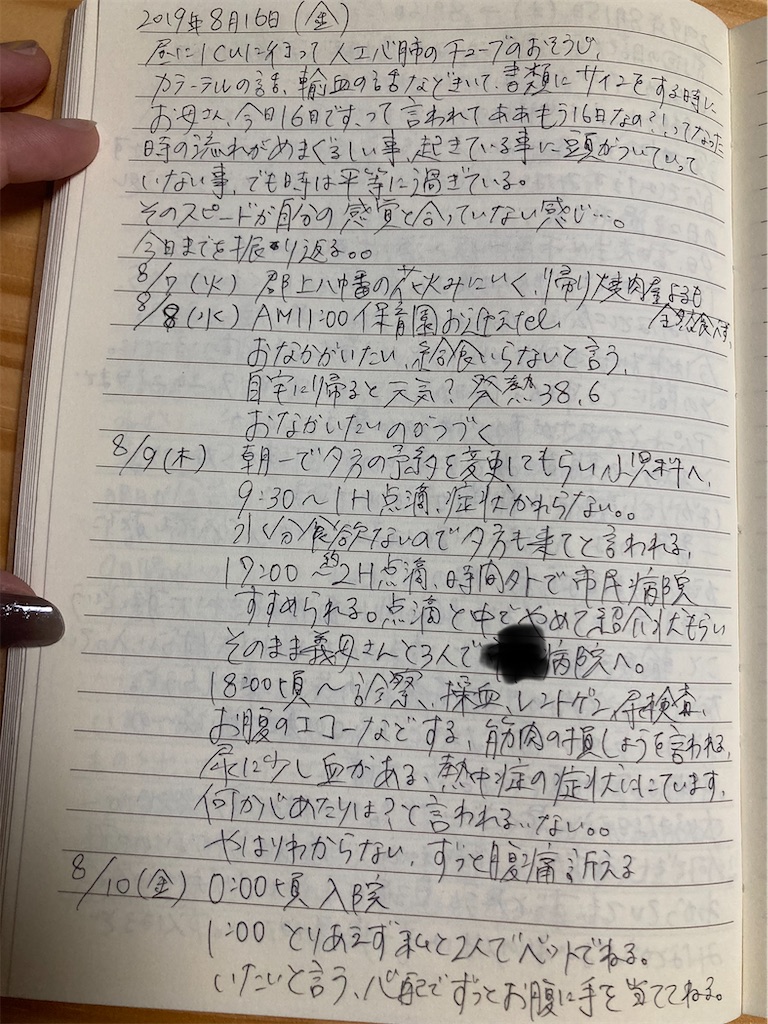 2019年8月16日(金)
昼にICUに行って人工心肺のチューブのおそうじ、
カテーテルの話、輸血の話などきいて、書類にサインをする時に
お母さん、今日16日です、って言われてああもう16日なの?!ってなった
時の流れがめまぐるしい事、起きている事に頭がついていって
いない事、でも時は平等に過ぎている。
そのスピードが自分の感覚と合っていない感じ…。
今日までを振り返る。。
8/7(火) 郡上八幡の花火みにいく、帰り焼肉屋よるも
全然食べず、
8/8(水) AM11:00保育園お迎えtel
おなかがいたい、給食いらないと言う、
自宅に帰ると天気?発熱38.6
おなかいたいのがつづく
8/9(木) 朝一で夕方の予約を変更してもらい小児科へ、
9:30~1H点滴、症状かわらない。。
水分食欲ないので夕方も来てと言われる、
17:00~約2H点滴、時間外で市民病院
すすめられる。点滴と中でやめて紹介状もらい
そのまま義母さんと3人で 病院へ。
18:00頃~診察、採血、レントゲン、尿検査、
お腹のエコーなどする、筋肉の損しょうを言われる、
尿に少し血がある、熱中症の症状ににています、
何か心あたりは?と言われる…ない。。
やはりわからない、ずっと腹痛訴える
8/10(金) 0:00頃入院
1:00 とりあえず私と2人でベットでねる。
いたいと言う、心配でずっとお腹に手を当ててねる。